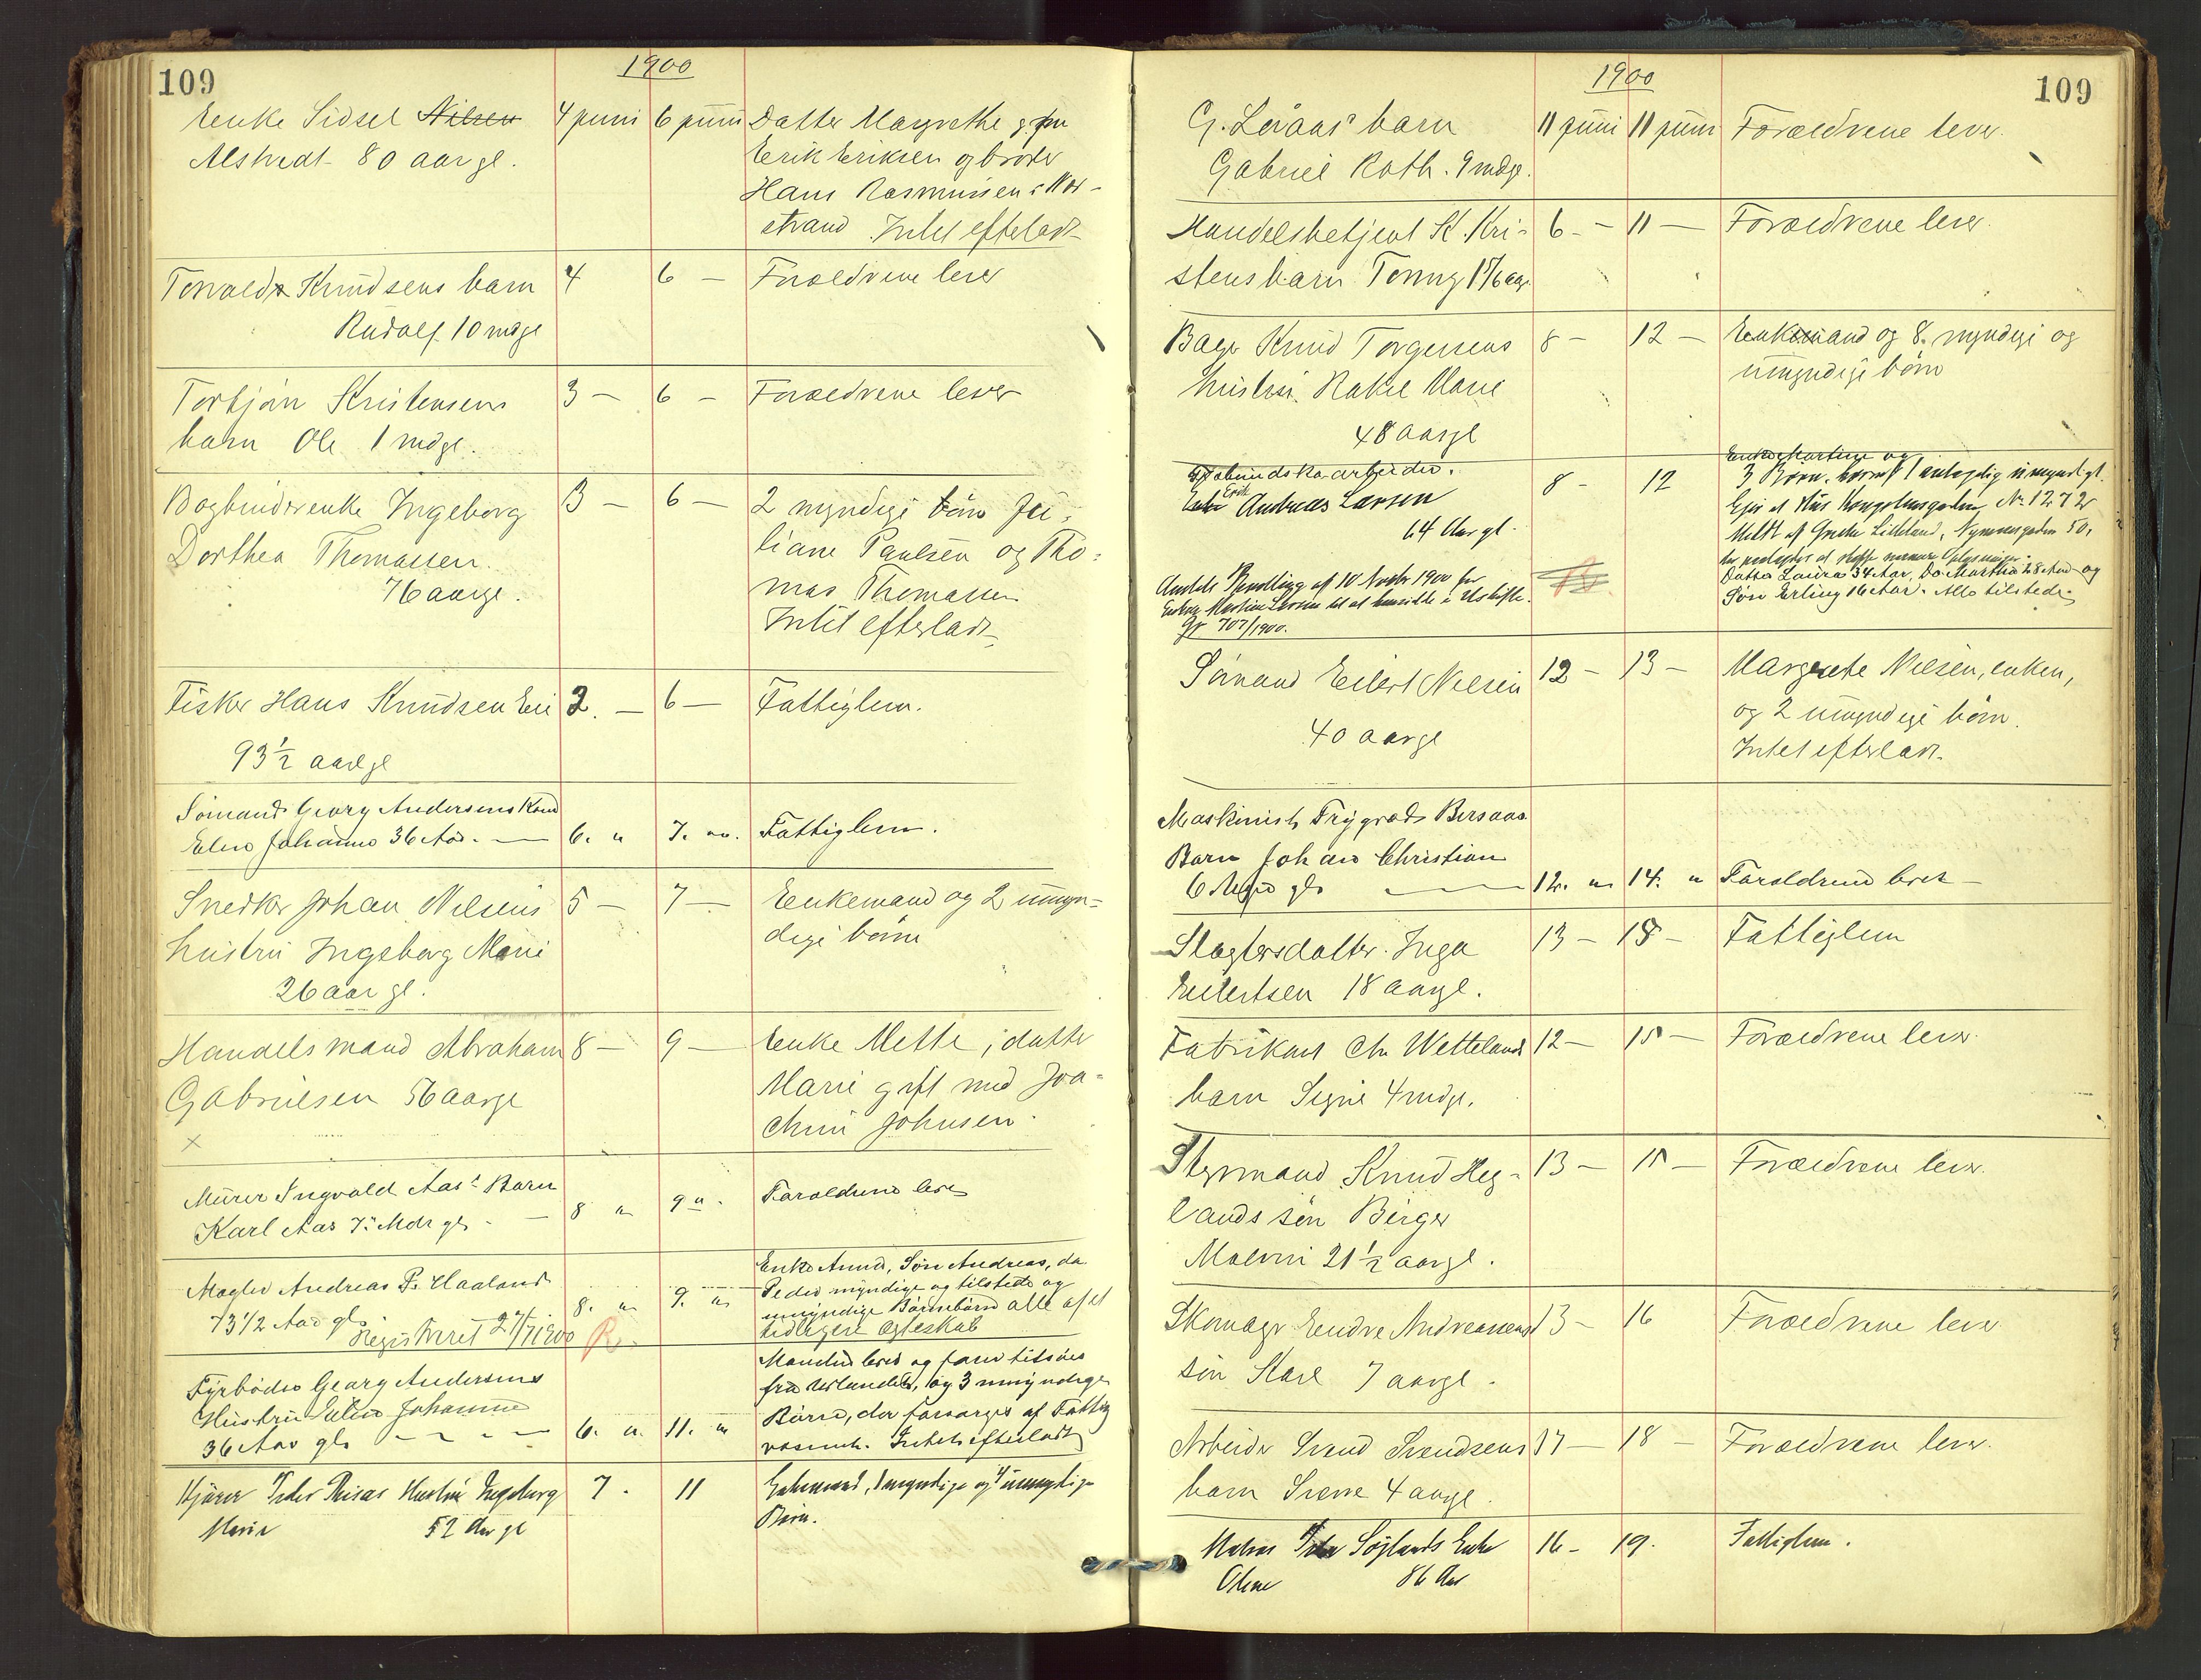 109
1900
Enke Sidsel Nilsen 4 juni 6 juni Datter Margrethe g. m
Alstredt 80 aar gl. Erik Eriksen og broder
Hans Rasmussen i Nor-
strand Intet efterladt
Torvald Knudsens barn 4 6 — Forældrene lever
Rudolf 10 mdgl
Torbjørn Kristensens 3 — 6 — Forældrene lever
barn Ole 1 mdgl.
Bogbinderenke Ingeborg 3 — 6 — 2 myndige børn Ju-
Dorthea Thomassen. liane Paulsen og Tho-
76 aar gl. mas Thomassen
Intet efterladt
Fisker Hans Knudsen Eie 2. — 6 — Fattiglem.
93 1/2 aar gl
Sømand Georg Andersens Kone
Eline Johanne 36 Aar. — 6. " 7. " Fattiglem.
Snedker Johan Nilsens 5 — 7 — Enkemand og 2 umyn-
hustru Ingeborg Marie dige børn
26 aar gl.
Handelsmand Abraham 8 — 9 — Enke Mette, datter
Gabrielsen 56 aar gl Marie gift med Joa-
chim Johnsen.
x
Murer Ingvald Aas' Barn
Karl Aas 7 Mdr gl. — 8 " 9 " Forældrene lever
Mægler Andreas P. Haaland Enke Anna, Søn Andreas, do
73 1/2 Aar gl. 8. " 9. " Peder myndige og tilstede og
umyndige Børnebørn alle af et
Registreret 27/7 1900 R. tidligere ægteskab
Fyrbøder Georg Andersens Manden lever og farer tilsøes
Hustru Eline Johanne fra Udlandet, og 3 umyndige
36 Aar gl. — 6. " 11. " Børn, der forsørges af Fattig
væsenet. Intet efterladt
Kjører Peder Risas Hustru Ingeborg 7. 11 Enkemand, 1 myndige og 4 umyndige
Marie 52 Aar gl Børn.
1900
109
G. Løvaas' barn 11 juni 11 juni Forældrene lever.
Gabriel Kath. 9 mdgl.
Handelsbetjent K. Kri- 6 — 11 — Forældrene lever.
stens barn Tonny 1 5/6 aar
Bager Knud Torgersens 8 — 12 — Enkemand og 8 myndige og
hustru Rakel Marie umyndige børn
48 aar gl
arbeider. Enke Martine og
Erik Andreas Larsen 8 - 12 3 Børn, hvoraf 1 umyndig
64 Aar gl. Eier et Hus Kongshusgaden No 12 72
Meldt af Lilleland, Nymansgaden 50,
Amtets Bevilling af 10 Novbr 1900 for
Enken Martine Larsen til at hensidde i Uskifte. Datter Laura 34 Aar, Do Martha 28 Aar og
Jr 707/1900. Søn Erling 16 Aar. Alle tilstede.
Sømand Eilert Nilsen 12 — 13 — Margrete Nilsen, enken,
40 aar gl og 2 umyndige børn.
Intet efterladt.
Maskinist Trygvads Bersaas
Barn Johan Christian
6 Mdr gl. — 12. " 14. " Forældrene lever
Slagtersdatter Inga 13 — 15 — Fattiglem
Eilertsen 18 aar gl.
Fabrikant Chr Wettelands 12 — 15 — Forældrene lever.
barn Signe 4 mdgl.
Styrmand Knud Heg- 13 — 15 — Forældrene lever.
lands søn Birger
Malvin 21 1/2 aar gl.
Skomager Endre Andreassens 13 — 16 Forældrene lever
søn Karl 7 aar gl.
Arbeider Svend Svendsens 17 — 18 — Forældrene lever.
barn Sverre 4 aar gl.
Matros Peder Søylands Enke 16 — 19. Fattiglem.
Oline 86 Aar